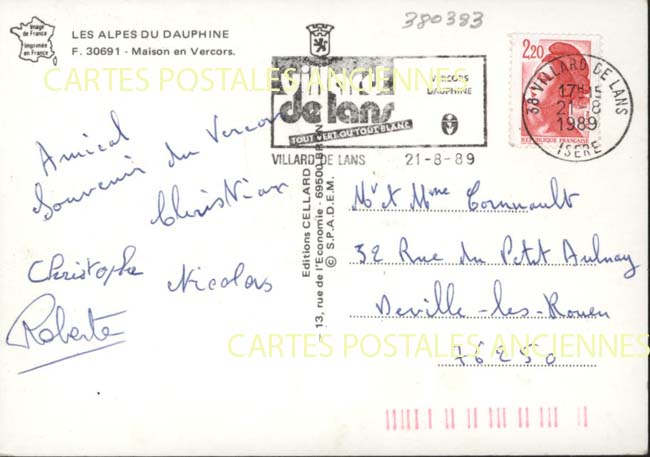 Image de France
Imprimée en France
LES ALPES DU DAUPHINE
F. 30691 - Maison en Vercors.
380383
CARTES POSTALES ANCIENNES
villard de lans
TOUT VERT OU TOUT BLANC
VERCORS
DAUPHINE
VILLARD DE LANS 21-8-89
2,20
REPUBLIQUE FRANÇAISE
38-VILLARD DE LANS
17H15
21-8
1989
ISERE
Amical
Souvenir du Vercors
Christian
Christophe Nicolas
Roberte
Editions CELLARD
- 13, rue de l'Economie - 69500 BRON
© S.P.A.D.E.M.
Mr et Mme Cornuault
32 Rue du Petit Aulnay
Deville-les-Rouen
76250
CARTES POSTALES ANCIENNES